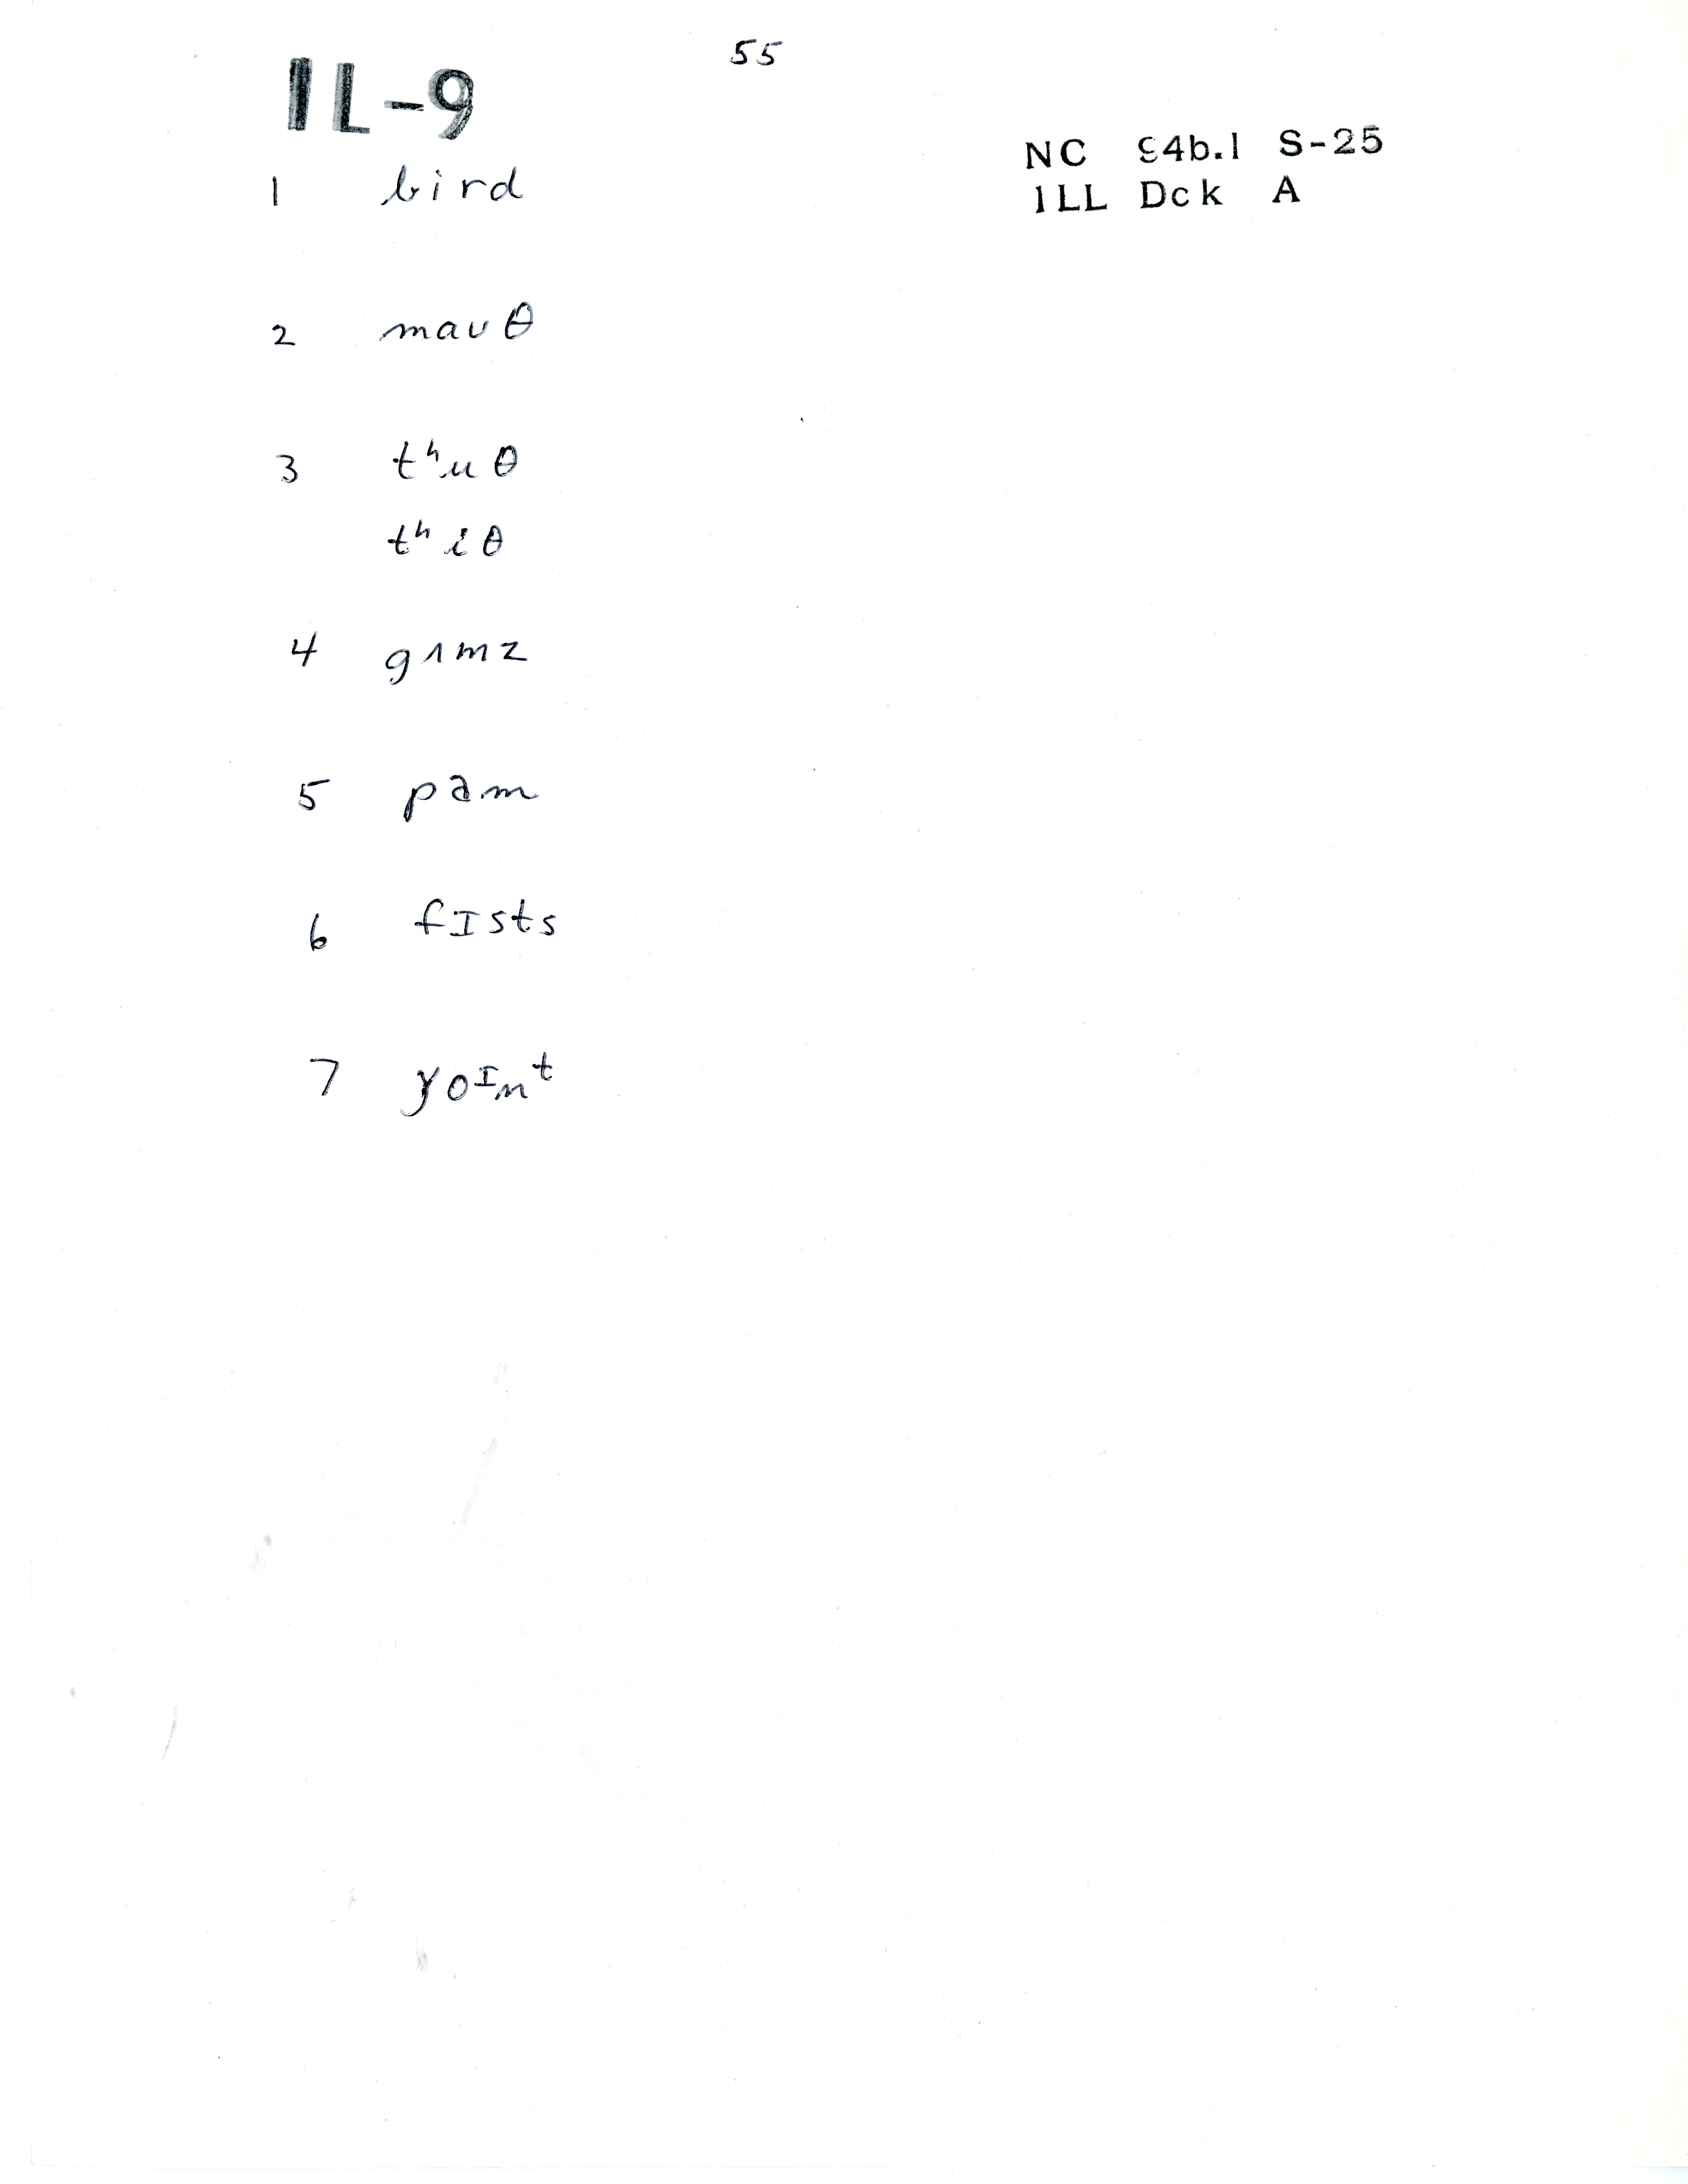 55
IL-9
NC 54b.1 S-25
ILL Dck A
1 bird
2 mauθ
3 tʰuθ
tʰiθ
4 gʌmz
5 pam
6 fɪsts
7 ɣoᴵnᵗ